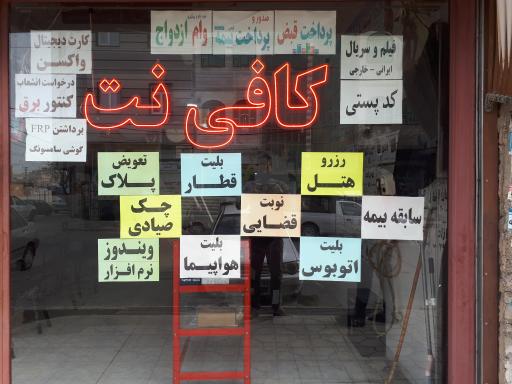 کارت دیجیتال
واکسن
درخواست انشعاب
کنتور برق
برداشتن FRP
گوشی سامسونگ
وام ازدواج
صدور و
پرداخت بیمه
پرداخت قبض
فیلم و سریال
ایرانی - خارجی
کد پستی
کافی نت
تعویض
پلاک
بلیت
قطار
رزرو
هتل
چک
صیادی
نوبت
قضایی
سابقه بیمه
ویندوز
نرم افزار
بلیت
هواپیما
بلیت
اتوبوس